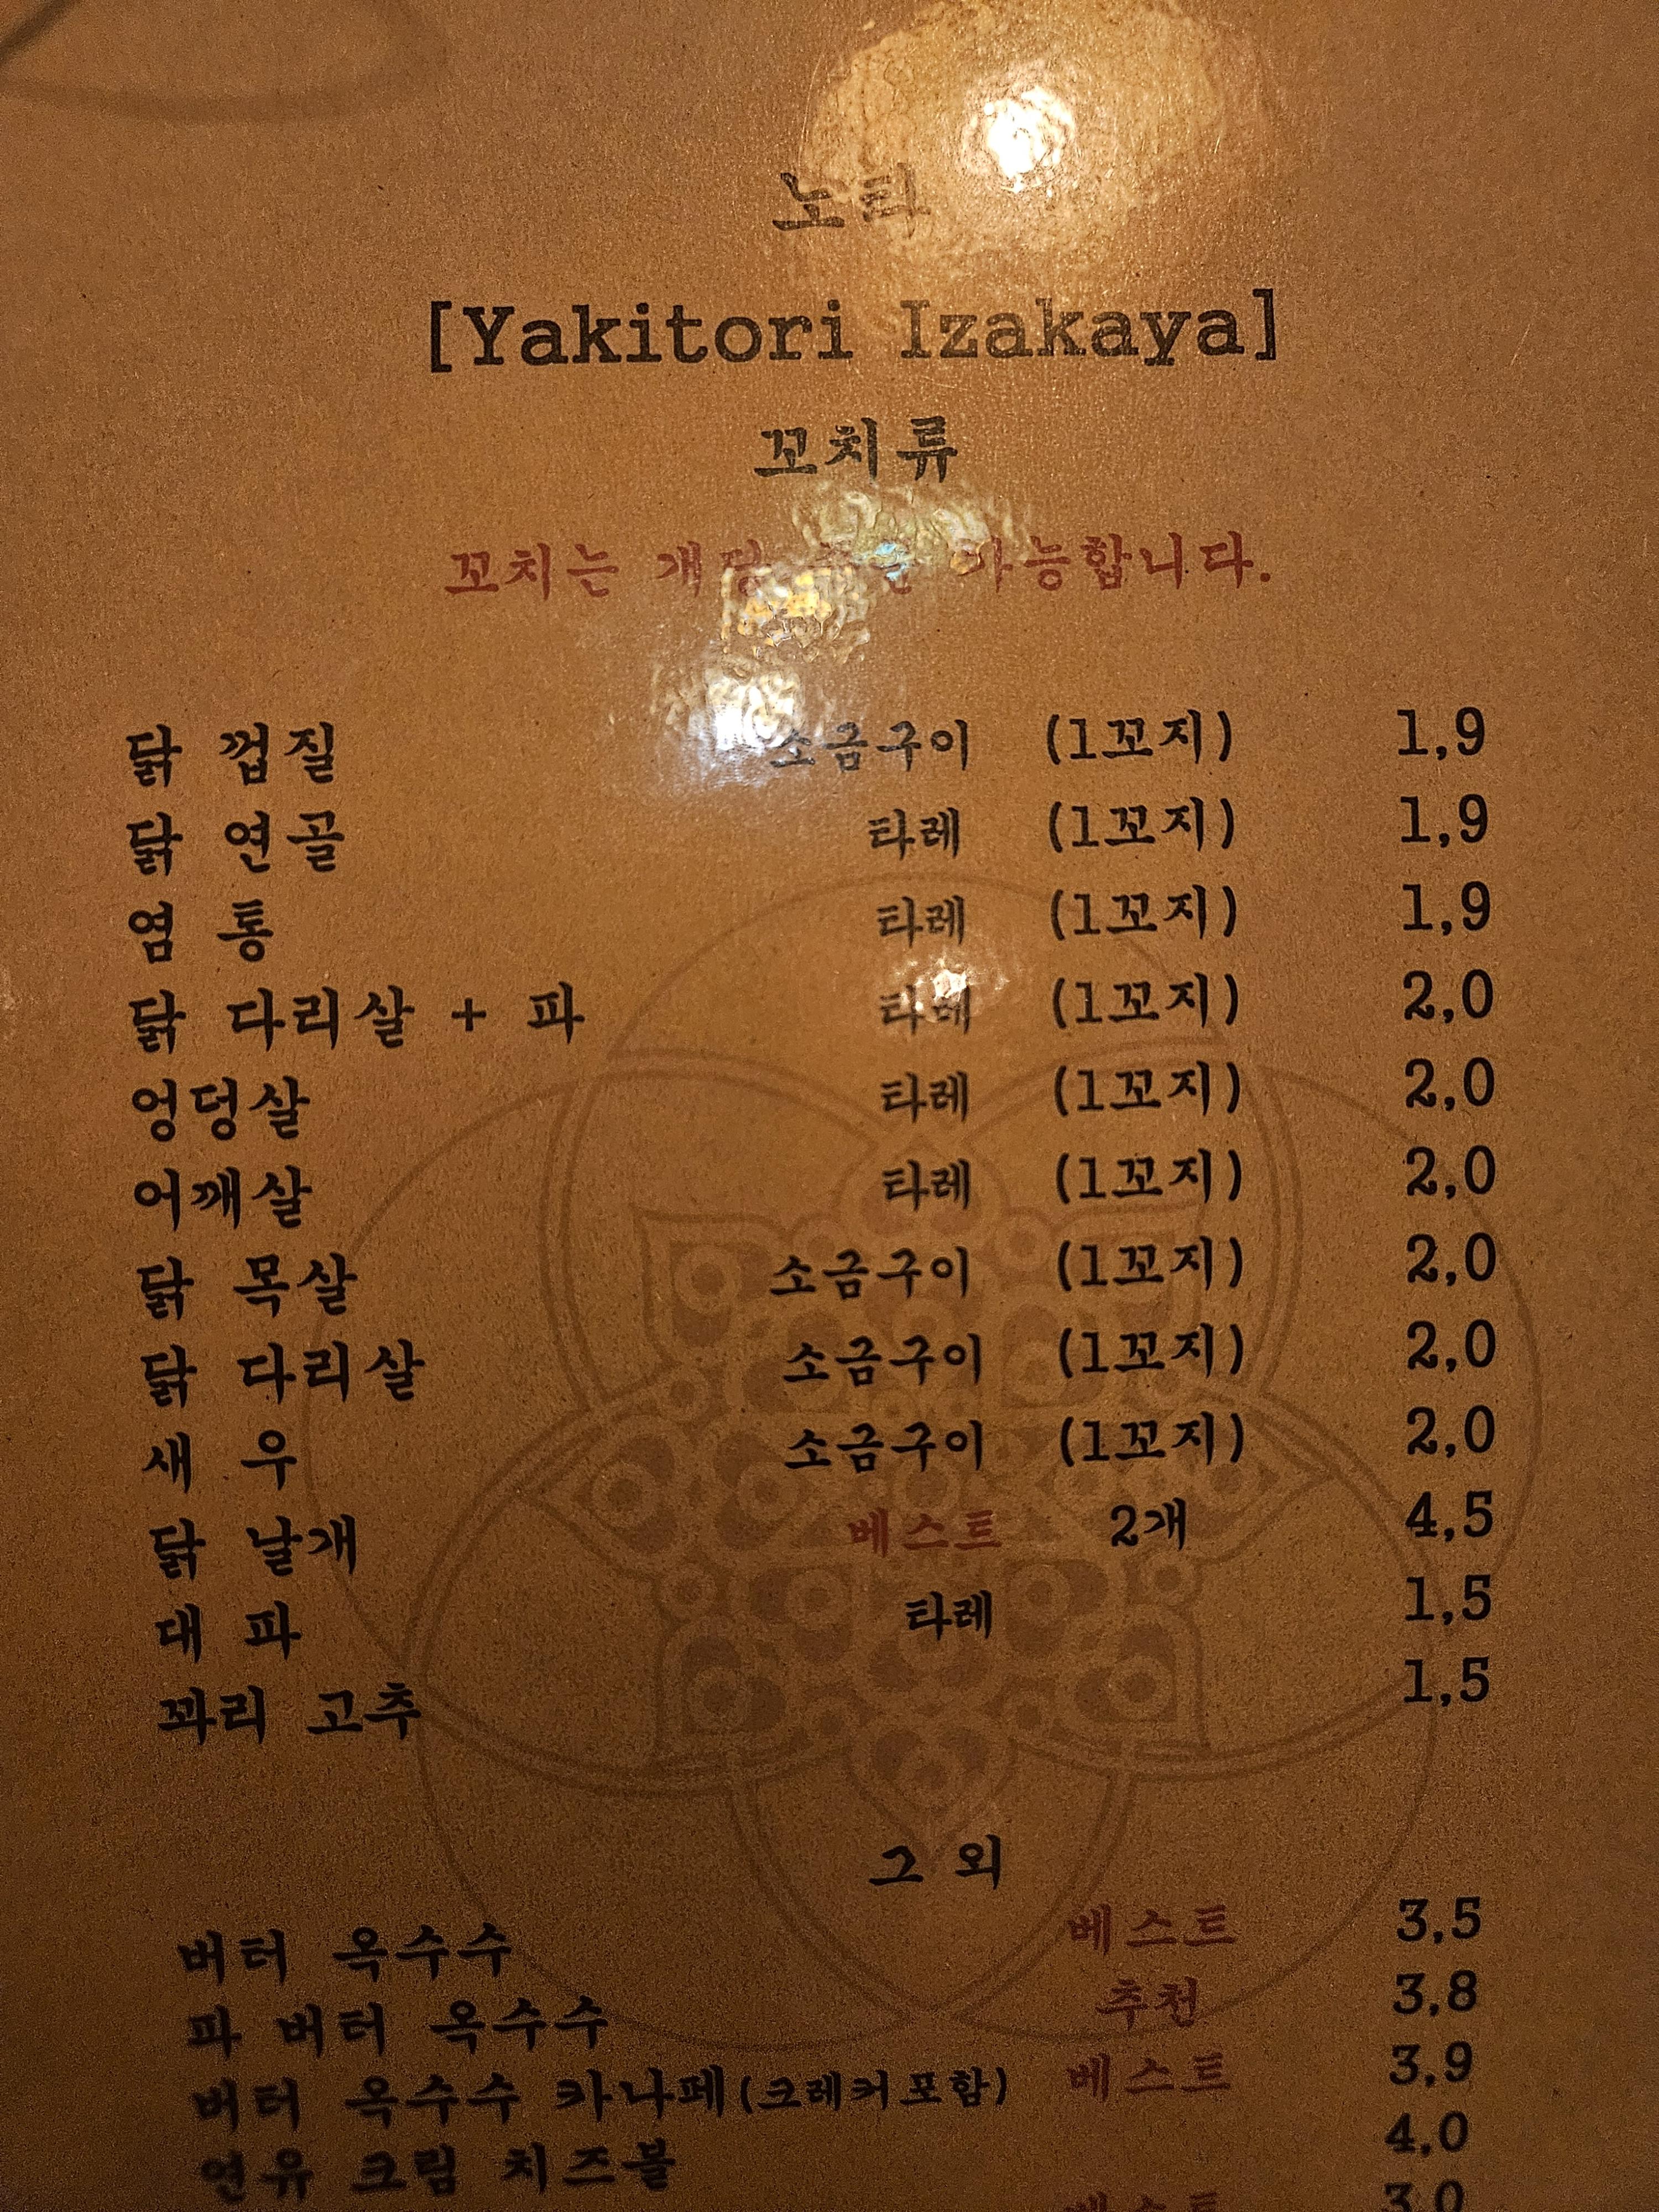 노타
[Yakitori Izakaya]
꼬치류
꼬치는 개당 주문 가능합니다.
닭 껍질 소금구이 (1꼬지) 1,9
닭 연골 타레 (1꼬지) 1,9
염 통 타레 (1꼬지) 1,9
닭 다리살 + 파 타레 (1꼬지) 2,0
엉덩살 타레 (1꼬지) 2,0
어깨살 타레 (1꼬지) 2,0
닭 목살 소금구이 (1꼬지) 2,0
닭 다리살 소금구이 (1꼬지) 2,0
새 우 소금구이 (1꼬지) 2,0
닭 날개 베스트 2개 4,5
대 파 타레 1,5
꽈리 고추 1,5
그 외
버터 옥수수 베스트 3,5
파 버터 옥수수 추천 3,8
버터 옥수수 카나페(크레커포함) 베스트 3,9
연유 크림 치즈볼 4,0
베스트 3,0